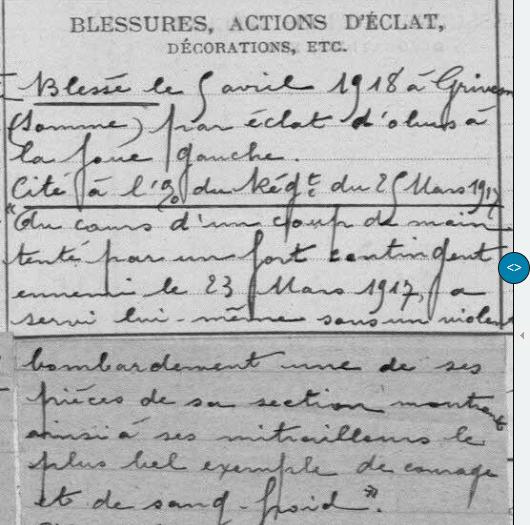 BLESSURES, ACTIONS D'ÉCLAT,
DÉCORATIONS, ETC.
Blessé le 5 avril 1918 à Grivesn
(Somme) par éclat d'obus à
la joue gauche.
Cité à l'O/ du Régt du 25 Mars 1917
"Au cours d'un coup de main
tenté par un fort contingent
ennemi le 23 Mars 1917, a
servi lui-même sous un violent
bombardement une de ses
pièces de sa section montrant
ainsi à ses mitrailleurs le
plus bel exemple de courage
et de sang-froid".